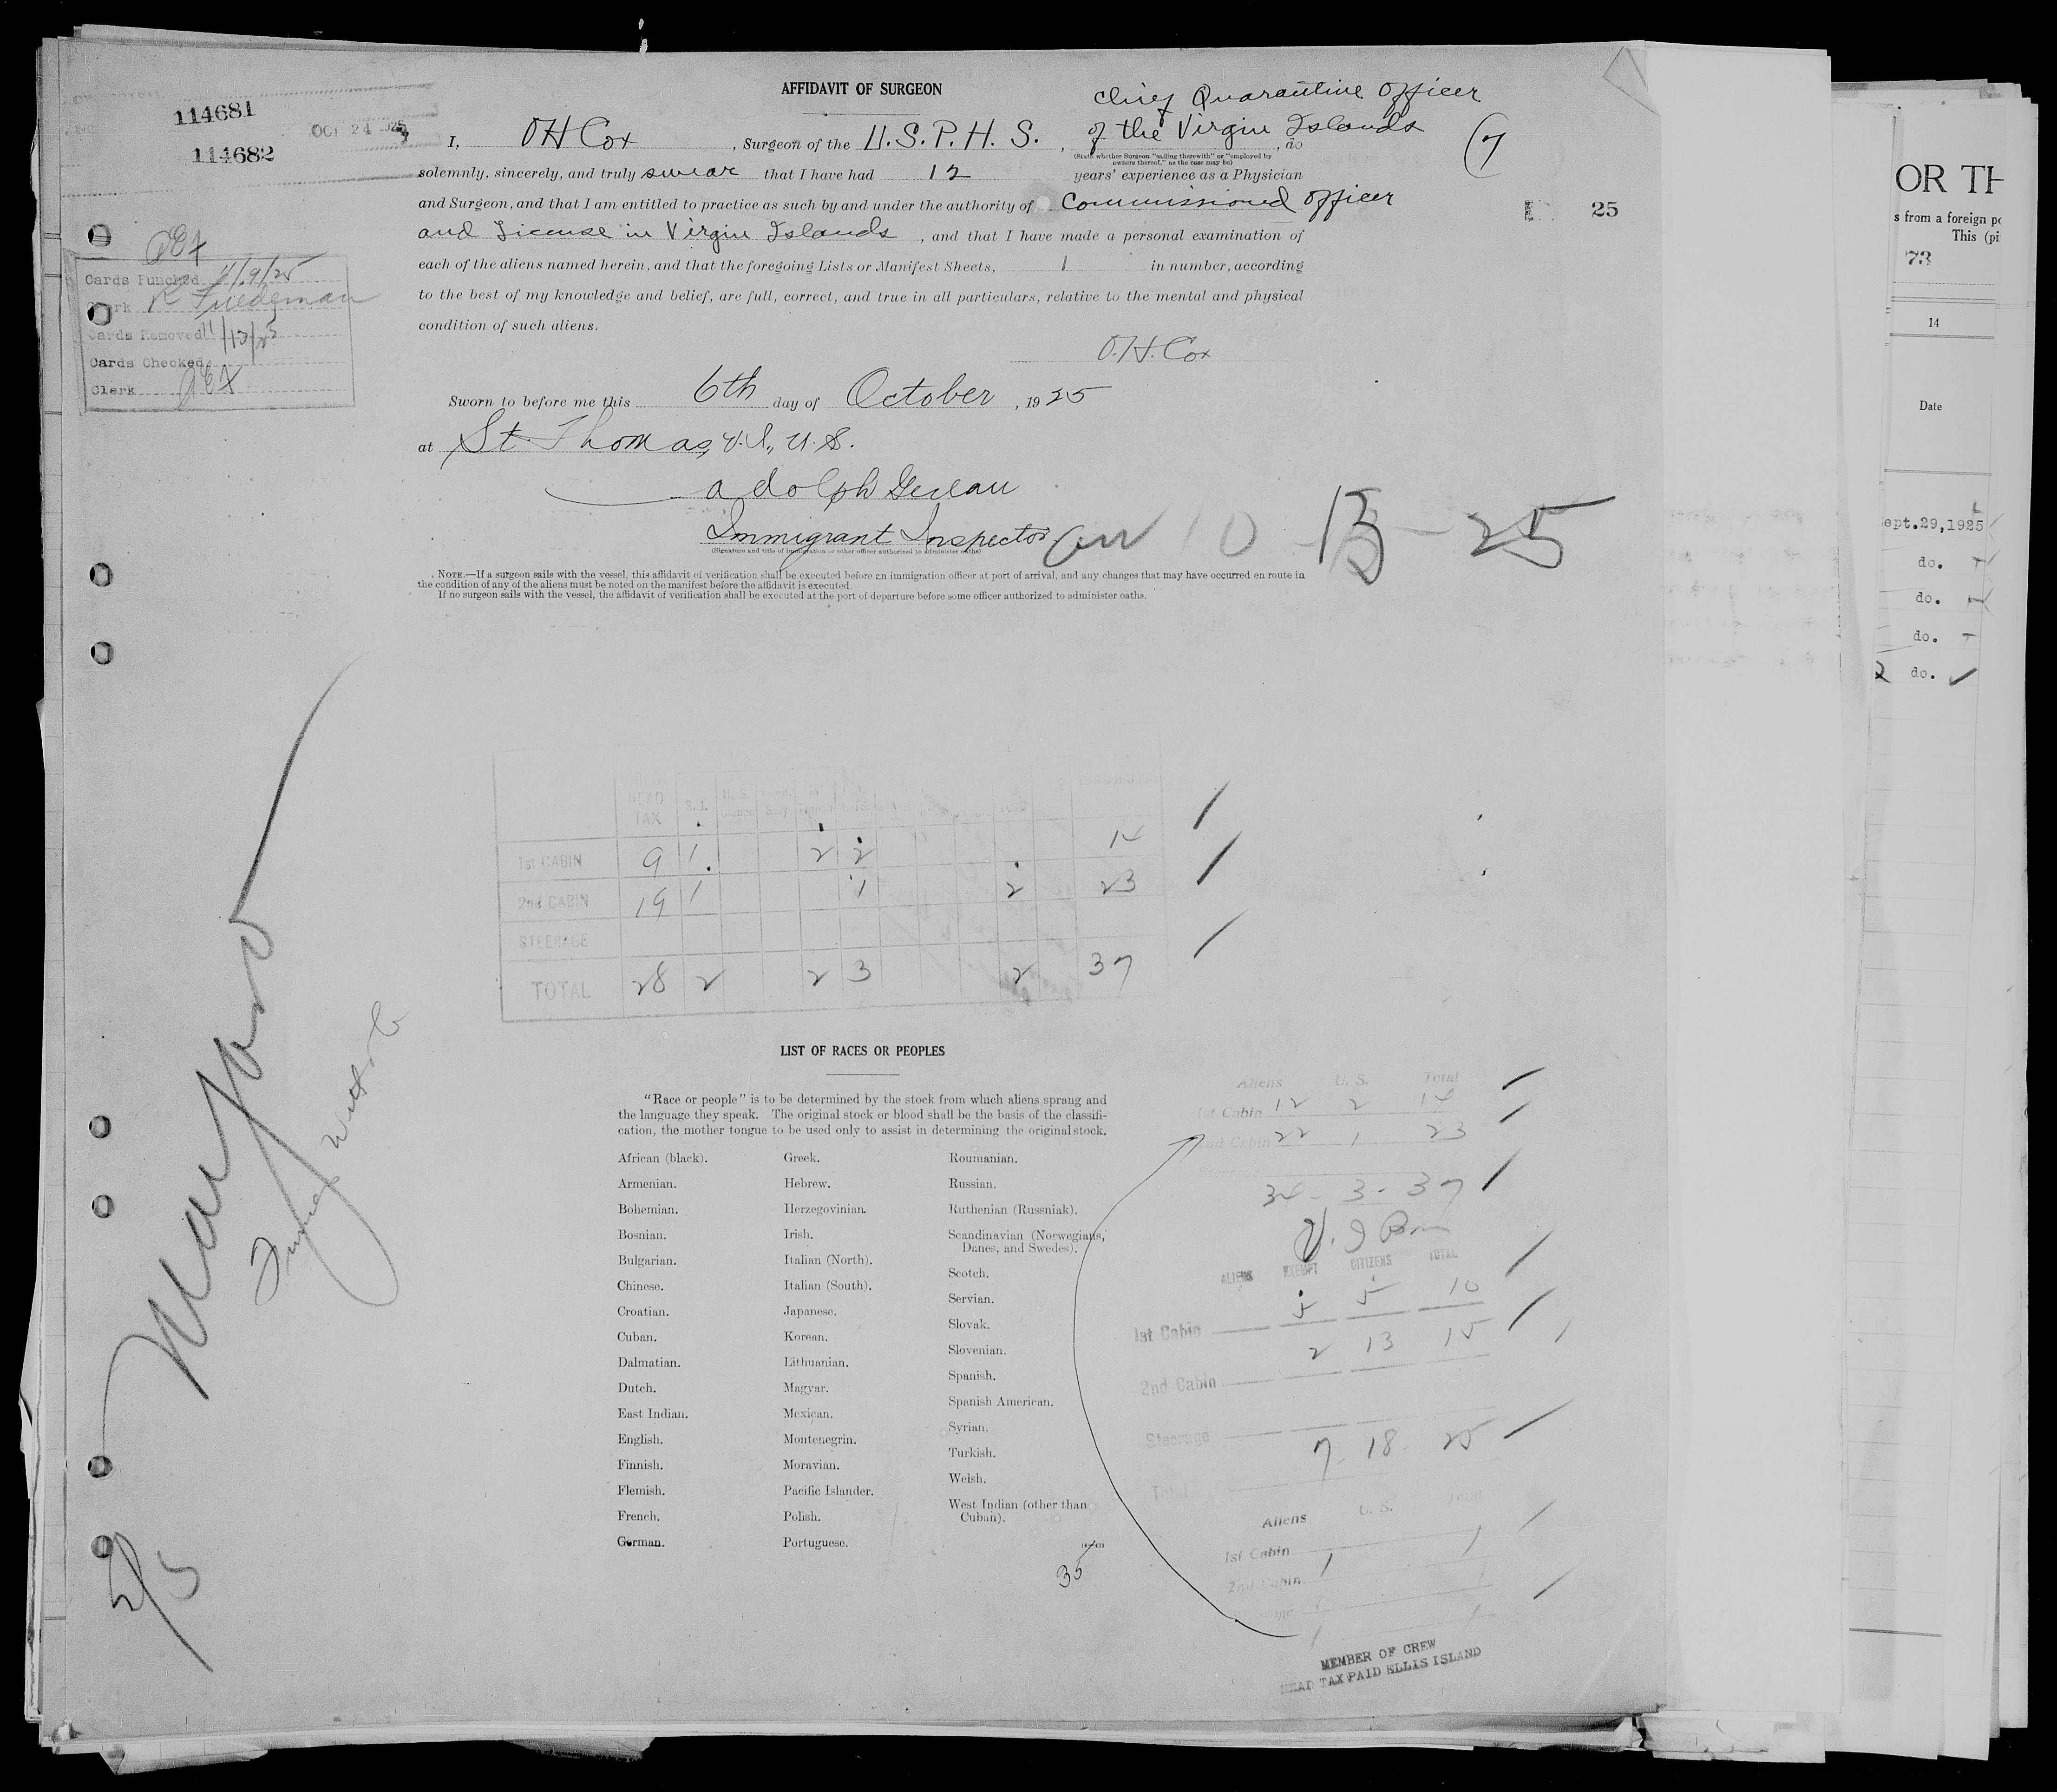 AFFIDAVIT OF SURGEON
114681
114682
OCT 24 1925
Chief Quarantine Officer
I, O H Cox, Surgeon of the U.S.P.H.S., of the Virgin Islands, do
(State whether Surgeon "sailing therewith" or "employed by owners thereof," as the case may be)
(7)
solemnly, sincerely, and truly swear that I have had 12 years' experience as a Physician
and Surgeon, and that I am entitled to practice as such by and under the authority of Commissioned officer
25
and License in Virgin Islands, and that I have made a personal examination of
each of the aliens named herein, and that the foregoing Lists or Manifest Sheets, 1 in number, according
to the best of my knowledge and belief, are full, correct, and true in all particulars, relative to the mental and physical
condition of such aliens.
O.H. Cox
Cards Punched 11/9/25
Clerk
Cards Removed
Cards Checked
Clerk
Sworn to before me this 6th day of October, 1925
at St Thomas, V.I., U.S.
Immigrant Inspector
(Signature and title of immigration or other officer authorized to administer oaths)
10-13-25
NOTE.—If a surgeon sails with the vessel, this affidavit of verification shall be executed before an immigration officer at port of arrival, and any changes that may have occurred en route in
the condition of any of the aliens must be noted on the manifest before the affidavit is executed.
If no surgeon sails with the vessel, the affidavit of verification shall be executed at the port of departure before some officer authorized to administer oaths.
HEAD TAX S. I.
1st CABIN 9 1 2 2 14
2nd CABIN 19 1 1 2 23
STEERAGE
TOTAL 28 2 2 3 2 37
LIST OF RACES OR PEOPLES
"Race or people" is to be determined by the stock from which aliens sprang and
the language they speak. The original stock or blood shall be the basis of the classifi-
cation, the mother tongue to be used only to assist in determining the original stock.
African (black).
Armenian.
Bohemian.
Bosnian.
Bulgarian.
Chinese.
Croatian.
Cuban.
Dalmatian.
Dutch.
East Indian.
English.
Finnish.
Flemish.
French.
German.
Greek.
Hebrew.
Herzegovinian.
Irish.
Italian (North).
Italian (South).
Japanese.
Korean.
Lithuanian.
Magyar.
Mexican.
Montenegrin.
Moravian.
Pacific Islander.
Polish.
Portuguese.
Roumanian.
Russian.
Ruthenian (Russniak).
Scandinavian (Norwegians,
Danes, and Swedes).
Scotch.
Servian.
Slovak.
Slovenian.
Spanish.
Spanish American.
Syrian.
Turkish.
Welsh.
West Indian (other than
Cuban).
Aliens U. S. Total
1st Cabin 12 2 14
2nd Cabin 22 1 23
34 - 3 - 37
ALIENS EXEMPT CITIZENS TOTAL
1st Cabin 5 5 10
2nd Cabin 2 13 15
Steerage
Total 7 18 25
Aliens U. S. Total
1st Cabin
2nd Cabin 1 1
MEMBER OF CREW
HEAD TAX PAID ELLIS ISLAND
OR TH
s from a foreign po
This (pi
14
Date
Sept.29,1925
do.
do.
do.
do.